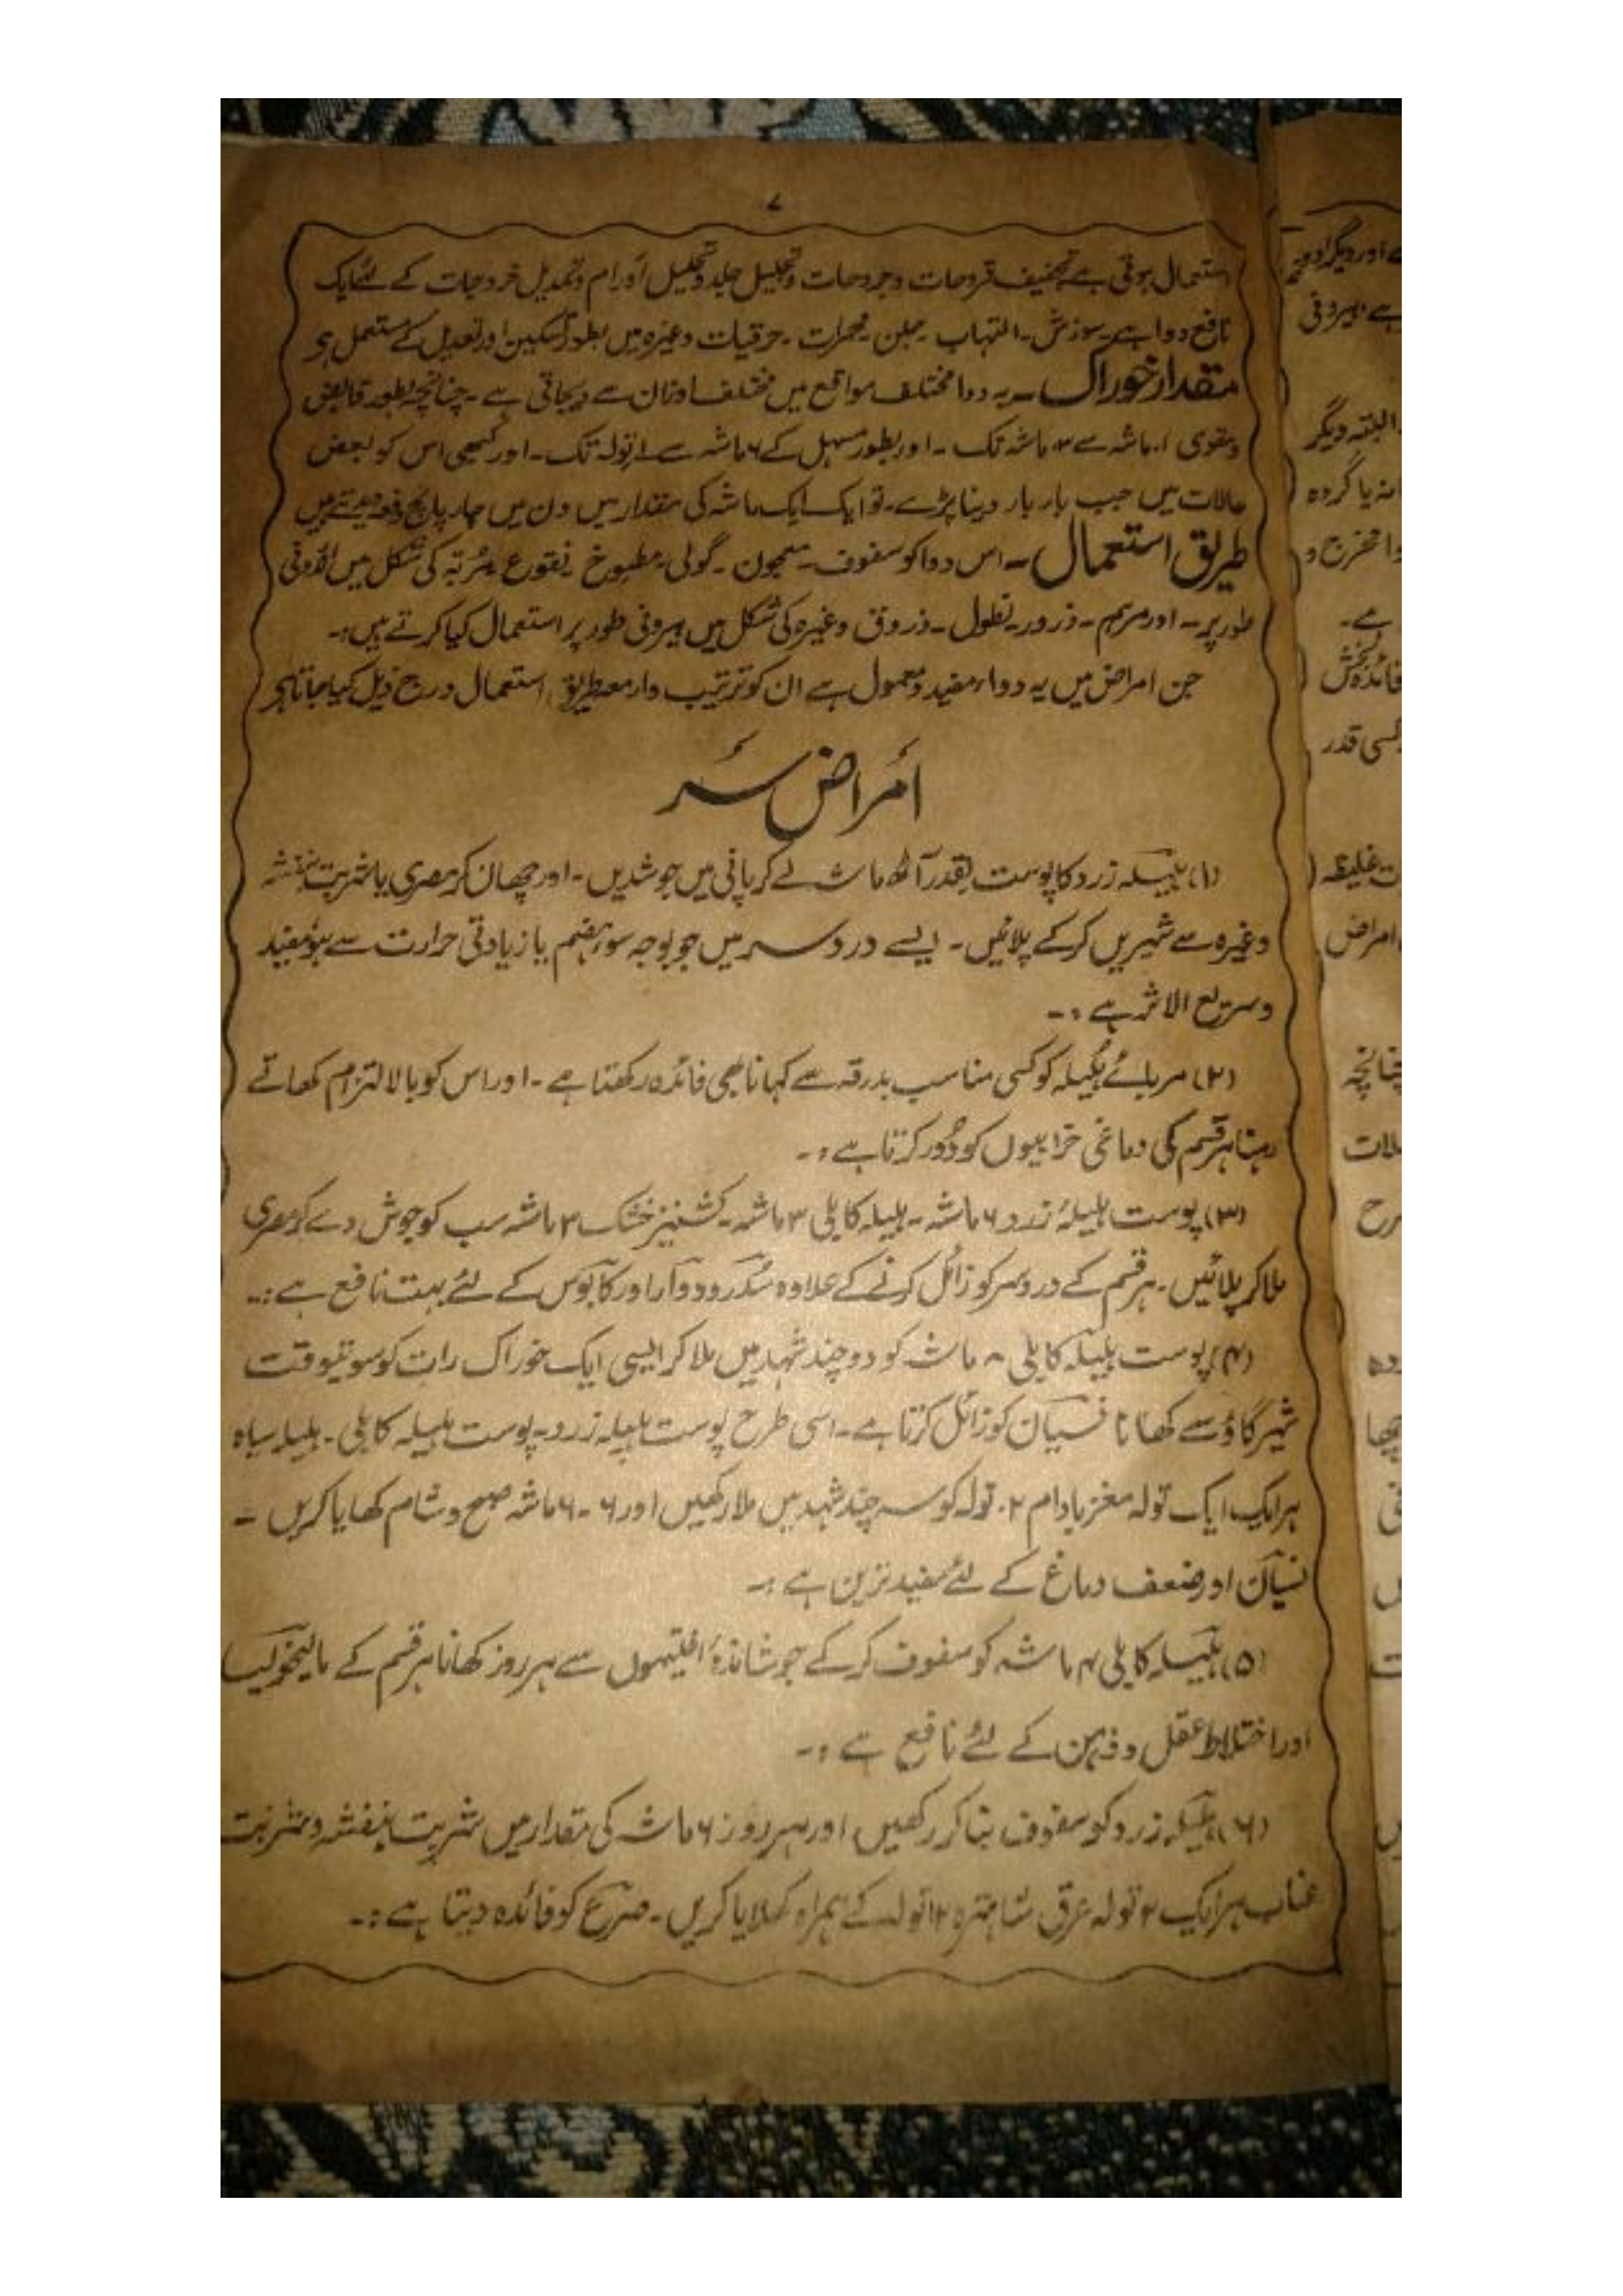 ۷
استعمال ہوتی ہے تجفیف قروحات و جروحات و تحلیل اورام و کے لئے ایک
نافع دوا ہے۔ سوزش۔ التہاب۔ جلن۔ حرقیات وغیرہ میں بطور تسکین اور تعدیل کے مستعمل ہے
مقدار خوراک ۔ یہ دوا مختلف مواقع میں مختلف اوزان سے دیجاتی ہے ۔ چنانچہ بطور قابض
و مقوی ۱ ماشہ سے ۳ ماشہ تک ۔ اور بطور مسہل کے ۶ ماشہ سے ۱ تولہ تک۔ اور کبھی اس کو بعض
حالات میں جب بار بار دینا پڑے۔ تو ایک ایک ماشہ کی مقدار میں دن میں چار پانچ دفعہ دیتے ہیں
طریق استعمال ۔ اس دوا کو سفوف۔ معجون ۔ گولی۔ مطبوخ نقوع مربہ کی شکل میں اندرونی
طور پر۔ اور مرہم ۔ ذرور۔ نطول۔ ذروق وغیرہ کی شکل میں بیرونی طور پر استعمال کیا کرتے ہیں:۔
جن امراض میں یہ دواء مفید و معمول ہے ان کو ترتیب وار معہ طریق استعمال درج ذیل کیا جاتا ہے
امراض سر
(۱) ہلیلہ زرد کا پوست بقدر آٹھ ماشہ لے کر پانی میں جوشدیں۔ اور چھان کر مصری یا شربت بنفشہ
وغیرہ سے شیریں کر کے پلائیں۔ ایسے درد سر میں جو بوجہ سوء ہضم یا زیادتی حرارت سے ہو مفید
و سریع الاثر ہے :۔
(۲) مربائے ہلیلہ کو کسی مناسب بدرقہ سے کہانا بھی فائدہ رکھتا ہے ۔ اور اس کو بالالتزام کھاتے
رہنا ہر قسم کی دماغی خرابیوں کو دور کرتا ہے :۔
(۳) پوست ہلیلہ زرد ۶ ماشہ۔ ہلیلہ کابلی ۳ ماشہ۔ کشنیز خشک ۳ ماشہ سب کو جوش دے کر مصری
ملا کر پلائیں۔ ہر قسم کے درد سر کو زائل کرنے کے علاوہ سدر و دوار اور کابوس کے لئے بہت نافع ہے :۔
(۴) پوست ہلیلہ کابلی ۸ ماشہ کو دو چند شہد میں ملا کر ایسی ایک خوراک رات کو سوتیوقت
شیر گاؤ سے کھانا نسیان کو زائل کرتا ہے۔ اسی طرح پوست ہلیلہ زرد۔ پوست ہلیلہ کابلی۔ ہلیلہ سیاہ
ہر ایک ایک تولہ مغز بادام ۲ تولہ کو سہ چند شہد میں ملا رکھیں اور ۶۔۶ ماشہ صبح و شام کھایا کریں ۔
نسیان اور ضعف دماغ کے لئے مفید ترین ہے :۔
(۵) ہلیلہ کابلی ۴ ماشہ کو سفوف کر کے جوشاندۂ افتیموں سے ہر روز کھانا ہر قسم کے مالیخولیا
اور اختلاط عقل و ذہن کے لئے نافع ہے :۔
(۶) ہلیلہ زرد کو سفوف بنا کر رکھیں اور ہر روز ۶ ماشہ کی مقدار میں شربت بنفشہ و شربت
عناب ہر ایک ۲ تولہ عرق شاہترہ ۱۲ تولہ کے ہمراہ کھلایا کریں۔ صرع کو فائدہ دیتا ہے :۔
اور دیگر ادویہ
ہے بیرونی
البتہ دیگر
نہ یا گردہ
مخرج و
ہے۔
فائدہ بخش
کسی قدر
غلیظہ
امراض
چنانچہ